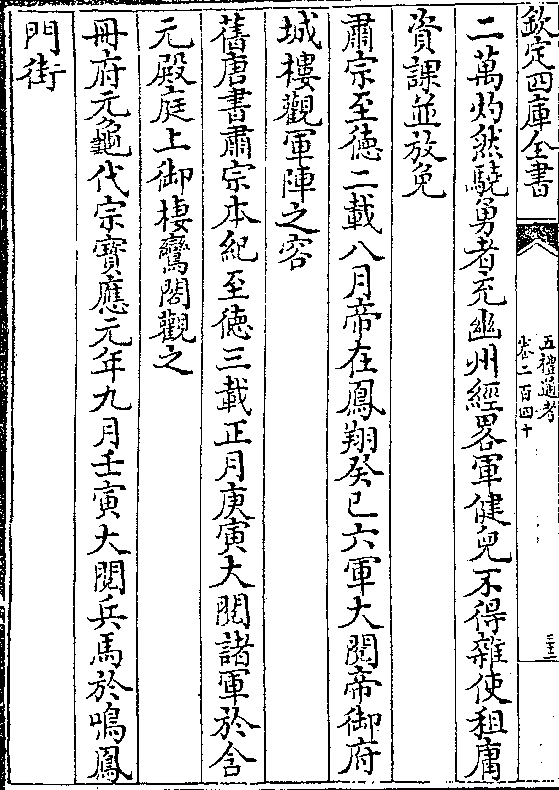 欽定四庫全書
五禮通考
卷二百四十
三十三
二萬灼然驍勇者充幽州經畧軍健兒不得雜使租庸
資課並放免
肅宗至德二載八月帝在鳳翔癸巳六軍大閱帝御府
城樓觀軍陣之容
舊唐書肅宗本紀至德三載正月庚寅大閱諸軍於含
元殿庭上御棲鸞閣觀之
冊府元龜代宗寶應元年九月壬寅大閱兵馬於鳴鳳
門街